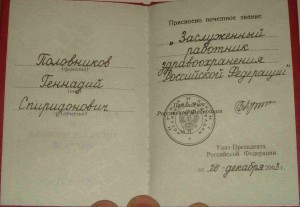 Половников
(фамилия)
Геннадий
(имя)
Спиридонович
(отчество)
Присвоено почетное звание
„Заслуженный
работник
здравоохранения
Российской Федерации"
Президент
Российской Федерации
Указ Президента
Российской Федерации
декабря